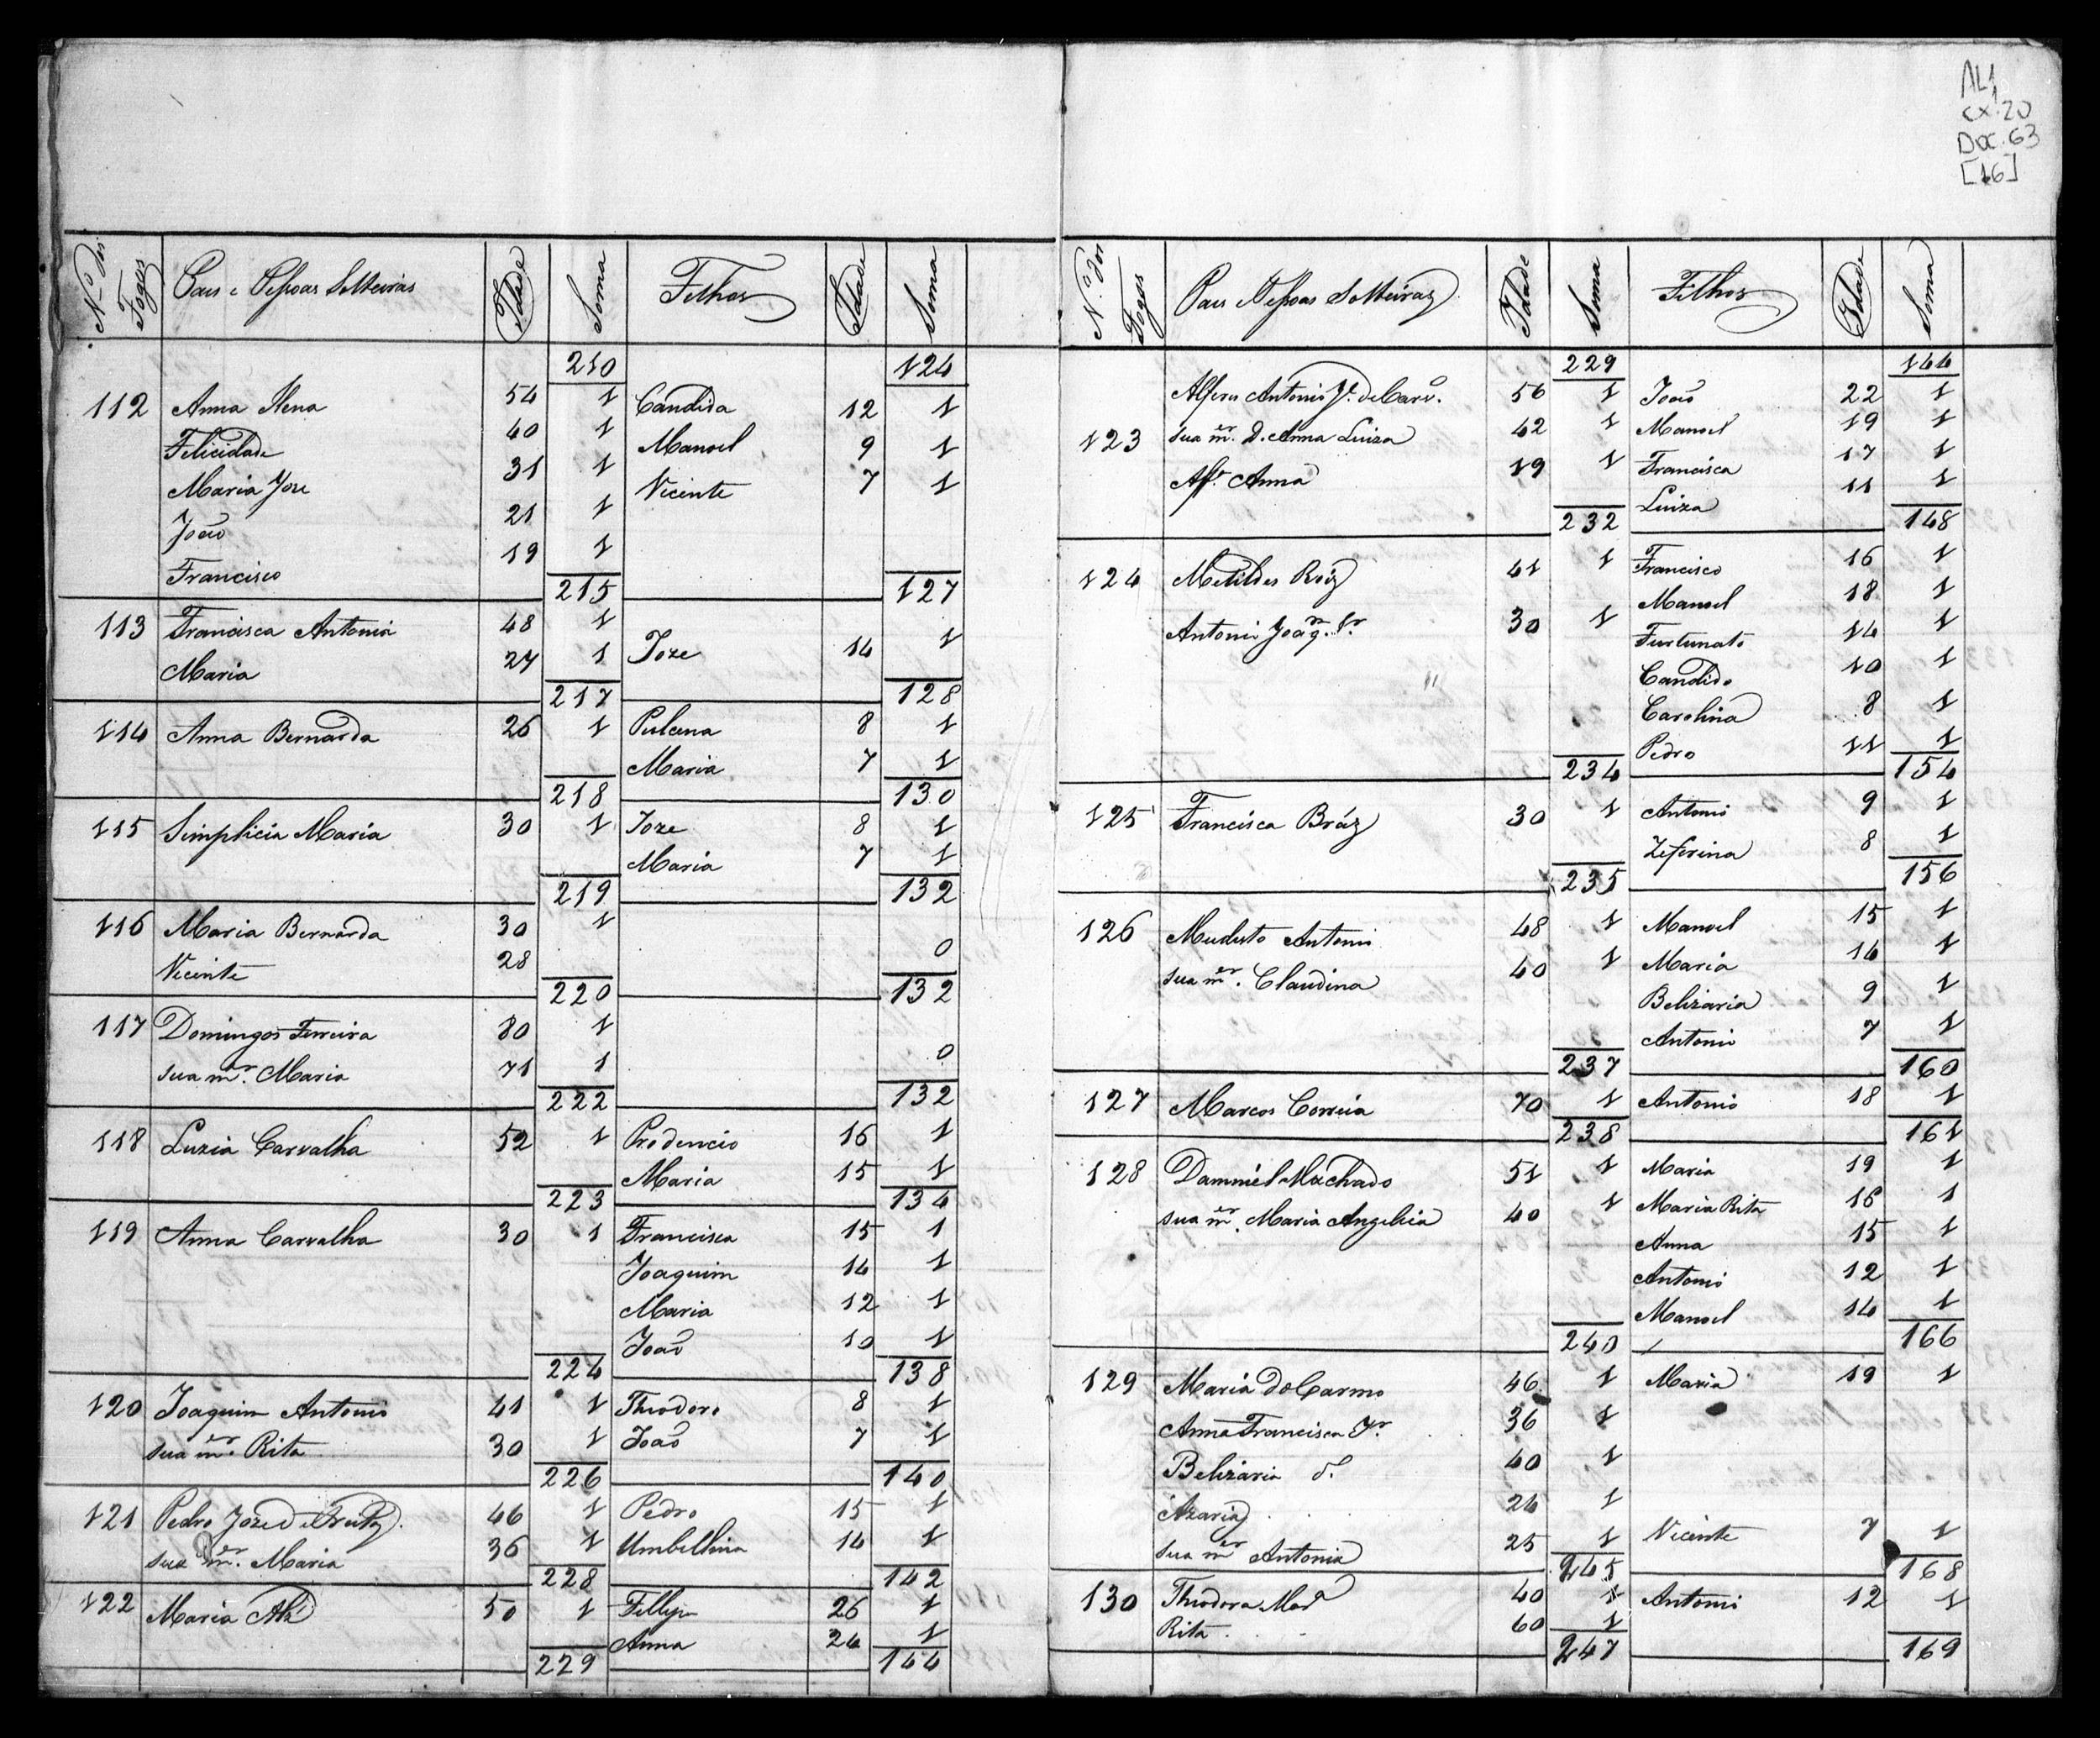 AL1
cx.20
Doc.63
[16]
N.º dos Fogos Paes e Pessoas Solteiras Idade Soma Filhos Idade Soma
210 124
112 Anna Ilena 54 1 Candida 12 1
Felicidade 40 1 Manoel 9 1
Maria Joze 31 1 Vicente 7 1
João 21 1
Francisco 19 1
215 127
113 Francisca Antonia 48 1
Maria 27 1 Joze 14 1
217 128
114 Anna Bernarda 26 1 Pulcena 8 1
Maria 7 1
218 130
115 Simplicia Maria 30 1 Joze 8 1
Maria 7 1
219 132
116 Maria Bernarda 30 1
Vicente 28 0
220 132
117 Domingos Ferreira 80 1
sua m.er Maria 71 1 0
222 132
118 Luzia Carvalha 52 1 Prodencio 16 1
Maria 15 1
223 134
119 Anna Carvalha 30 1 Francisca 15 1
Joaquim 14 1
Maria 12 1
João 10 1
224 138
120 Joaquim Antonio 41 1 Theodoro 8 1
sua m.er Rita 30 1 João 7 1
226 140
121 Pedro Joze de 46 1 Pedro 15 1
sua m.er Maria 36 1 Umbellina 14 1
228 142
122 Maria 50 1 Fellipe 26 1
Anna 24 1
229 144
N.º dos Fogos Paes e Pessoas Solteiras Idade Soma Filhos Idade Soma
229 144
Alferes Antonio J.e de Carv.o 56 1 João 22 1
123 sua m.er D. Anna Luiza 42 1 Manoel 19 1
Anna 19 1 Francisca 17 1
Luiza 11 1
232 148
124 Metildes Roiz 41 1 Francisco 16 1
Manoel 18 1
Antonio Joaq.m 30 1 Furtunato 14 1
Candido 10 1
Carolina 8 1
Pedro 11 1
234 154
125 Francisca Bráz 30 1 Antonio 9 1
Zeferina 8 1
235 156
126 Mudesto Antonio 48 1 Manoel 15 1
sua m.er Claudina 40 1 Maria 14 1
Belizaria 9 1
Antonio 7 1
237 160
127 Marcos Correia 70 1 Antonio 18 1
238 161
128 Dammiél Machado 51 1 Maria 19 1
sua m.er Maria Angelica 40 1 Maria Rita 16 1
Anna 15 1
Antonio 12 1
Manoel 14 1
240 166
129 Maria do Carmo 46 1 Maria 19 1
Anna Francisca 36 1
Belizaria 40 1
Azarias 24 1
sua m.er Antonia 25 1 Vicente 7 1
245 168
130 Theodora Mar.a 40 1 Antonio 12 1
Rita 60 1
247 169